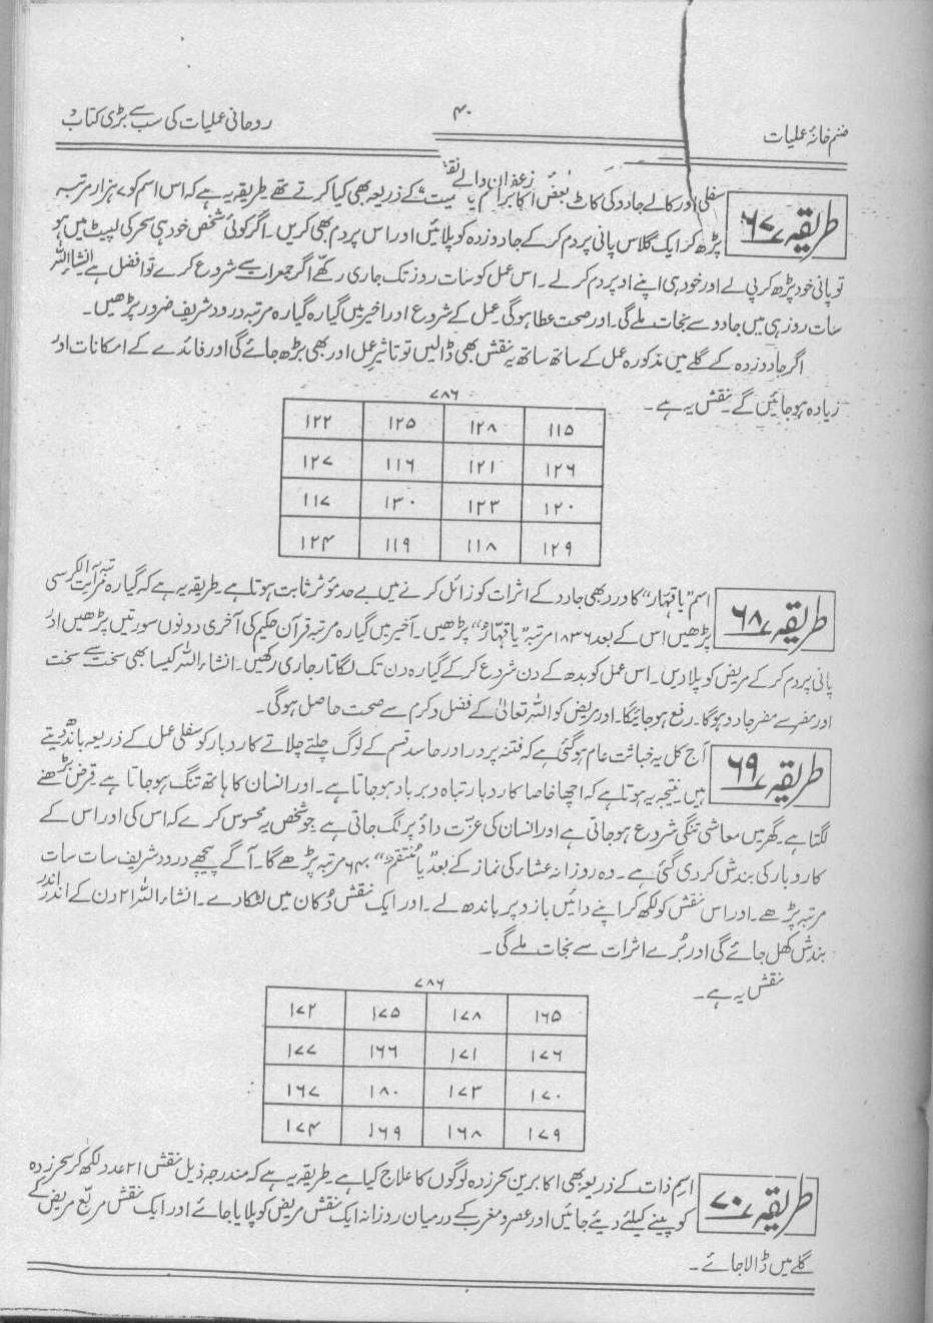 صنم خانۂ عملیات
۴۰
روحانی عملیات کی سب سے بڑی کتاب
زعفران والے نقش
طریقہ ۶۷
سفلی اور کالے جادو کی کاٹ بعض اکابر اسم یا ممیت کے ذریعہ بھی کیا کرتے تھے طریقہ یہ ہے کہ اس اسم کو ۷ ہزار مرتبہ
پڑھ کر ایک گلاس پانی پر دم کر کے جادو زدہ کو پلائیں اور اس پر دم بھی کریں۔ اگر کوئی شخص خود ہی سحر کی لپیٹ میں ہو
تو پانی خود پڑھ کر پی لے اور خود ہی اپنے اوپر دم کر لے۔ اس عمل کو سات روز تک جاری رکھے اگر جمعرات سے شروع کرے تو افضل ہے انشاء اللہ
سات روز ہی میں جادو سے نجات ملے گی۔ اور صحت عطا ہوگی۔ عمل کے شروع اور اخیر میں گیارہ گیارہ مرتبہ درود شریف ضرور پڑھیں۔
اگر جادو زدہ کے گلے میں مذکورہ عمل کے ساتھ ساتھ یہ نقش بھی ڈالیں تو تاثیر عمل اور بھی بڑھ جائے گی اور فائدے کے امکانات اور
زیادہ ہو جائیں گے۔ نقش یہ ہے۔
۷۸۶
۱۲۲ ۱۲۵ ۱۲۸ ۱۱۵
۱۲۷ ۱۱۶ ۱۲۱ ۱۲۶
۱۱۷ ۱۳۰ ۱۲۳ ۱۲۰
۱۲۴ ۱۱۹ ۱۱۸ ۱۲۹
طریقہ ۶۸
اسم "یا قہار" کا ورد بھی جادو کے اثرات کو زائل کرنے میں بے حد مؤثر ثابت ہوتا ہے۔ طریقہ یہ ہے کہ گیارہ مرتبہ آیت الکرسی
پڑھیں اس کے بعد ۱۸۳۶ مرتبہ "یا قہار" پڑھیں۔ آخیر میں گیارہ مرتبہ قرآن حکیم کی آخری دونوں سورتیں پڑھیں اور
پانی پر دم کر کے مریض کو پلا دیں۔ اس عمل کو بدھ کے دن شروع کر کے گیارہ دن تک لگاتار جاری رکھیں۔ انشاء اللہ کیسا بھی سخت سے سخت
اور مضر سے مضر جادو ہوگا۔ رفع ہو جائیگا۔ اور مریض کو اللہ تعالیٰ کے فضل و کرم سے صحت حاصل ہوگی۔
طریقہ ۶۹
آج کل یہ خباثت عام ہو گئی ہے کہ فتنہ پرور اور حاسد قسم کے لوگ چلتے چلاتے کاروبار کو سفلی عمل کے ذریعہ باندھ دیتے
ہیں۔ نتیجہ یہ ہوتا ہے کہ اچھا خاصا کاروبار تباہ و برباد ہو جاتا ہے۔ اور انسان کا ہاتھ تنگ ہو جاتا ہے قرض بڑھنے
لگتا ہے۔ گھر میں معاشی تنگی شروع ہو جاتی ہے اور انسان کی عزت داؤ پر لگ جاتی ہے جو شخص یہ محسوس کرے کہ اس کی اور اس کے
کاروبار کی بندش کر دی گئی ہے۔ وہ روزانہ عشاء کی نماز کے بعد "یا منتقم" ۶۴۰ مرتبہ پڑھے گا۔ آگے پیچھے درود شریف سات سات
مرتبہ پڑھے۔ اور اس نقش کو لکھ کر اپنے دائیں بازو پر باندھ لے۔ اور ایک نقش دکان میں لٹکا دے۔ انشاء اللہ ۲۱ دن کے اندر اندر
بندش کھل جائے گی اور بُرے اثرات سے نجات ملے گی۔
نقش یہ ہے۔
۷۸۶
۱۷۲ ۱۷۵ ۱۷۸ ۱۶۵
۱۷۷ ۱۶۶ ۱۷۱ ۱۷۶
۱۶۷ ۱۸۰ ۱۷۳ ۱۷۰
۱۷۴ ۱۶۹ ۱۶۸ ۱۷۹
طریقہ ۷۰
اسم ذات کے ذریعہ بھی اکابرین سحر زدہ لوگوں کا علاج کیا ہے۔ طریقہ یہ ہے کہ مندرجہ ذیل نقش ۲۱ عدد لکھ کر سحر زدہ
کو پینے کیلئے دیئے جائیں اور عصر و مغرب کے درمیان روزانہ ایک نقش مریض کو پلایا جائے اور ایک نقش مربع مریض کے
گلے میں ڈالا جائے۔